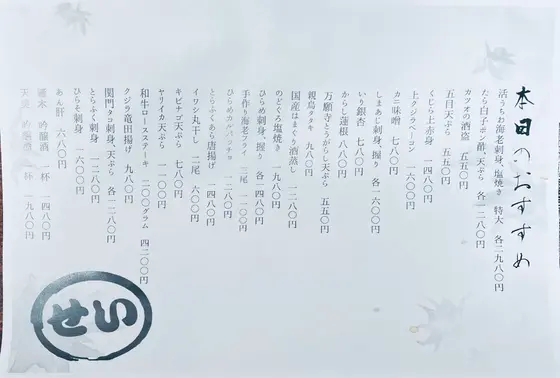 本日のおすすめ
活うちわ海老刺身、塩焼き 特大 各二九八〇円
たら白子ポン酢、天ぷら 各一二八〇円
カツオの酒盗 五五〇円
五目天ぷら 五五〇円
くじら上赤身 一四八〇円
上クジラベーコン 一二八〇円
カニ味噌 七八〇円
しまあじ刺身、握り 各一六〇〇円
いり銀杏 七八〇円
からし蓮根 八八〇円
万願寺とうがらし天ぷら 五五〇円
親鳥タタキ 九八〇円
国産はまぐり酒蒸し 二一〇〇円
のどぐろ塩焼き 一九八〇円
ひらめ刺身、握り 各一四八〇円
ひらめカルパッチョ 一二八〇円
手作り海老フライ 三尾 一一〇〇円
とらふぐあら唐揚げ 一二四八〇円
イワシ丸干し 二尾 六〇〇円
キビナゴ天ぷら 七八〇円
ヤリイカ天ぷら 七八〇円
和牛ロースステーキ 二〇〇グラム 四二〇〇円
クジラ竜田揚げ 九八〇円
関門タコ刺身、天ぷら 各一二八〇円
とらふぐ刺身 一二八〇円
ひらそ刺身 一六八〇円
あん肝 六八〇円
吟醸酒 一杯 一四八〇円
天 吟醸酒 一杯 一九八〇円
せい